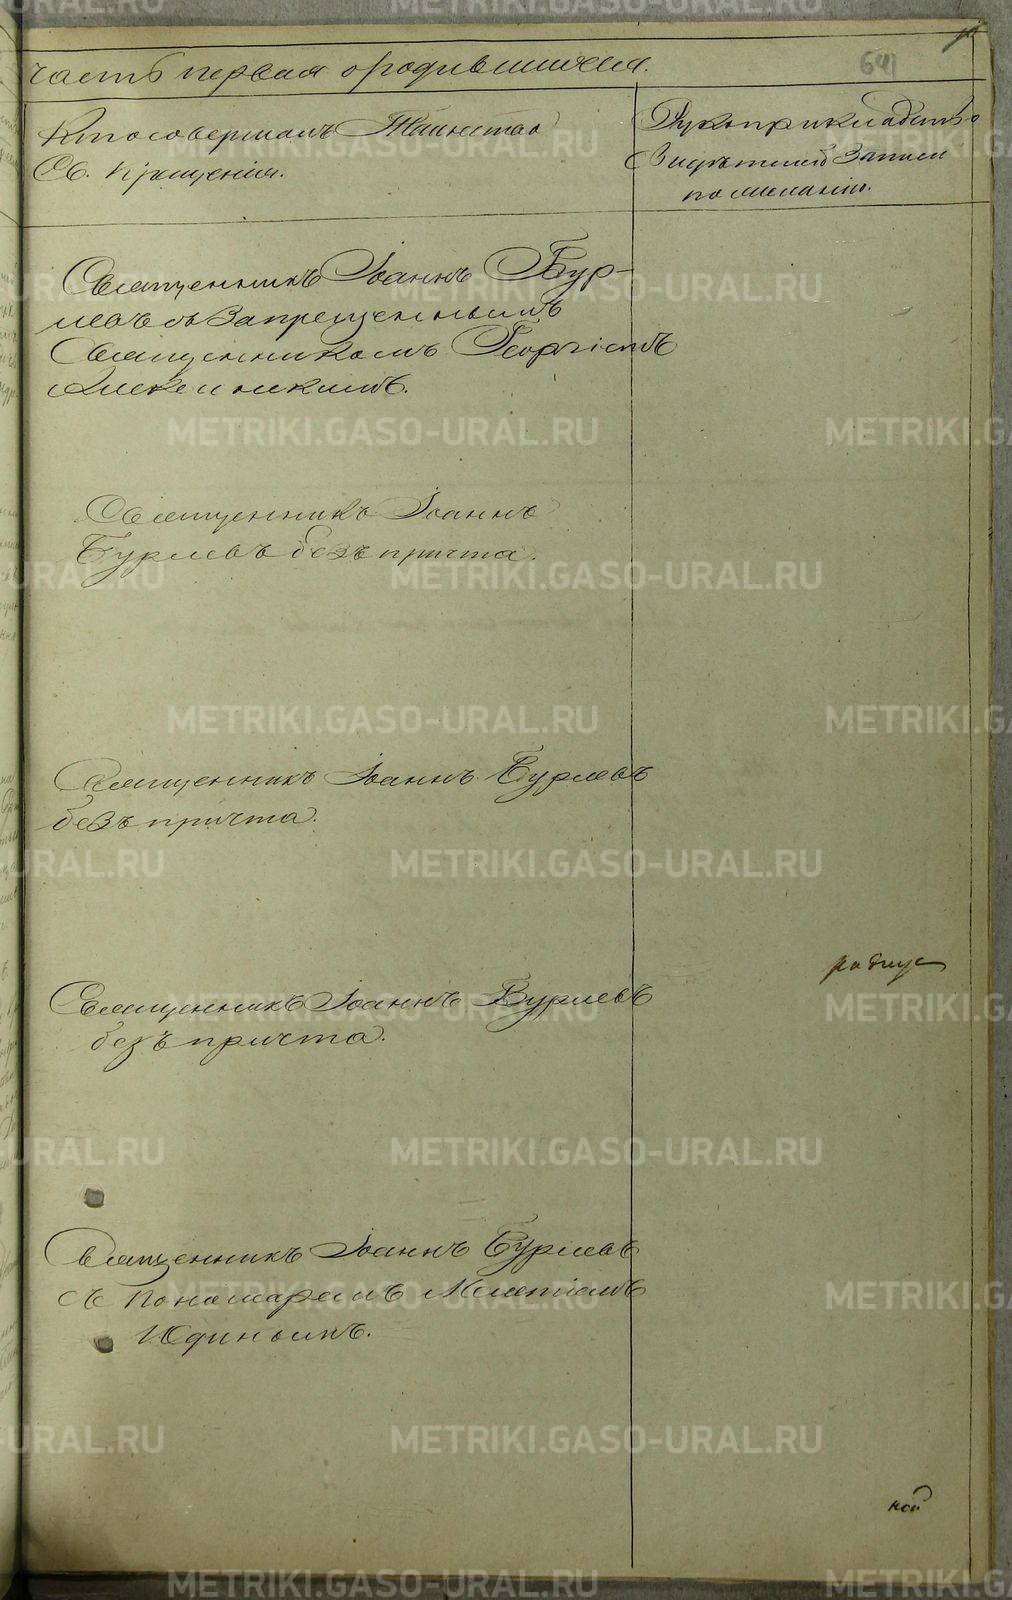 641
часть первая о родившихся.
Кто совершалъ Таинство
Св. Крещенія.
Рукоприкладство
Свидѣтелей Записи
по желанію.
Священникъ Іоаннъ Бур-
левъ съ Запрещеннымъ
Священникомъ Георгіемъ
Священникъ Іоаннъ
Бурлевъ безъ причта.
Священникъ Іоаннъ Бурлевъ
безъ причта.
Священникъ Іоаннъ Бурлевъ
безъ причта.
Священникъ Іоаннъ Бурлевъ
съ Пономаремъ Мелетіемъ
Юдинымъ.
кой
METRIKI.GASO-URAL.RU